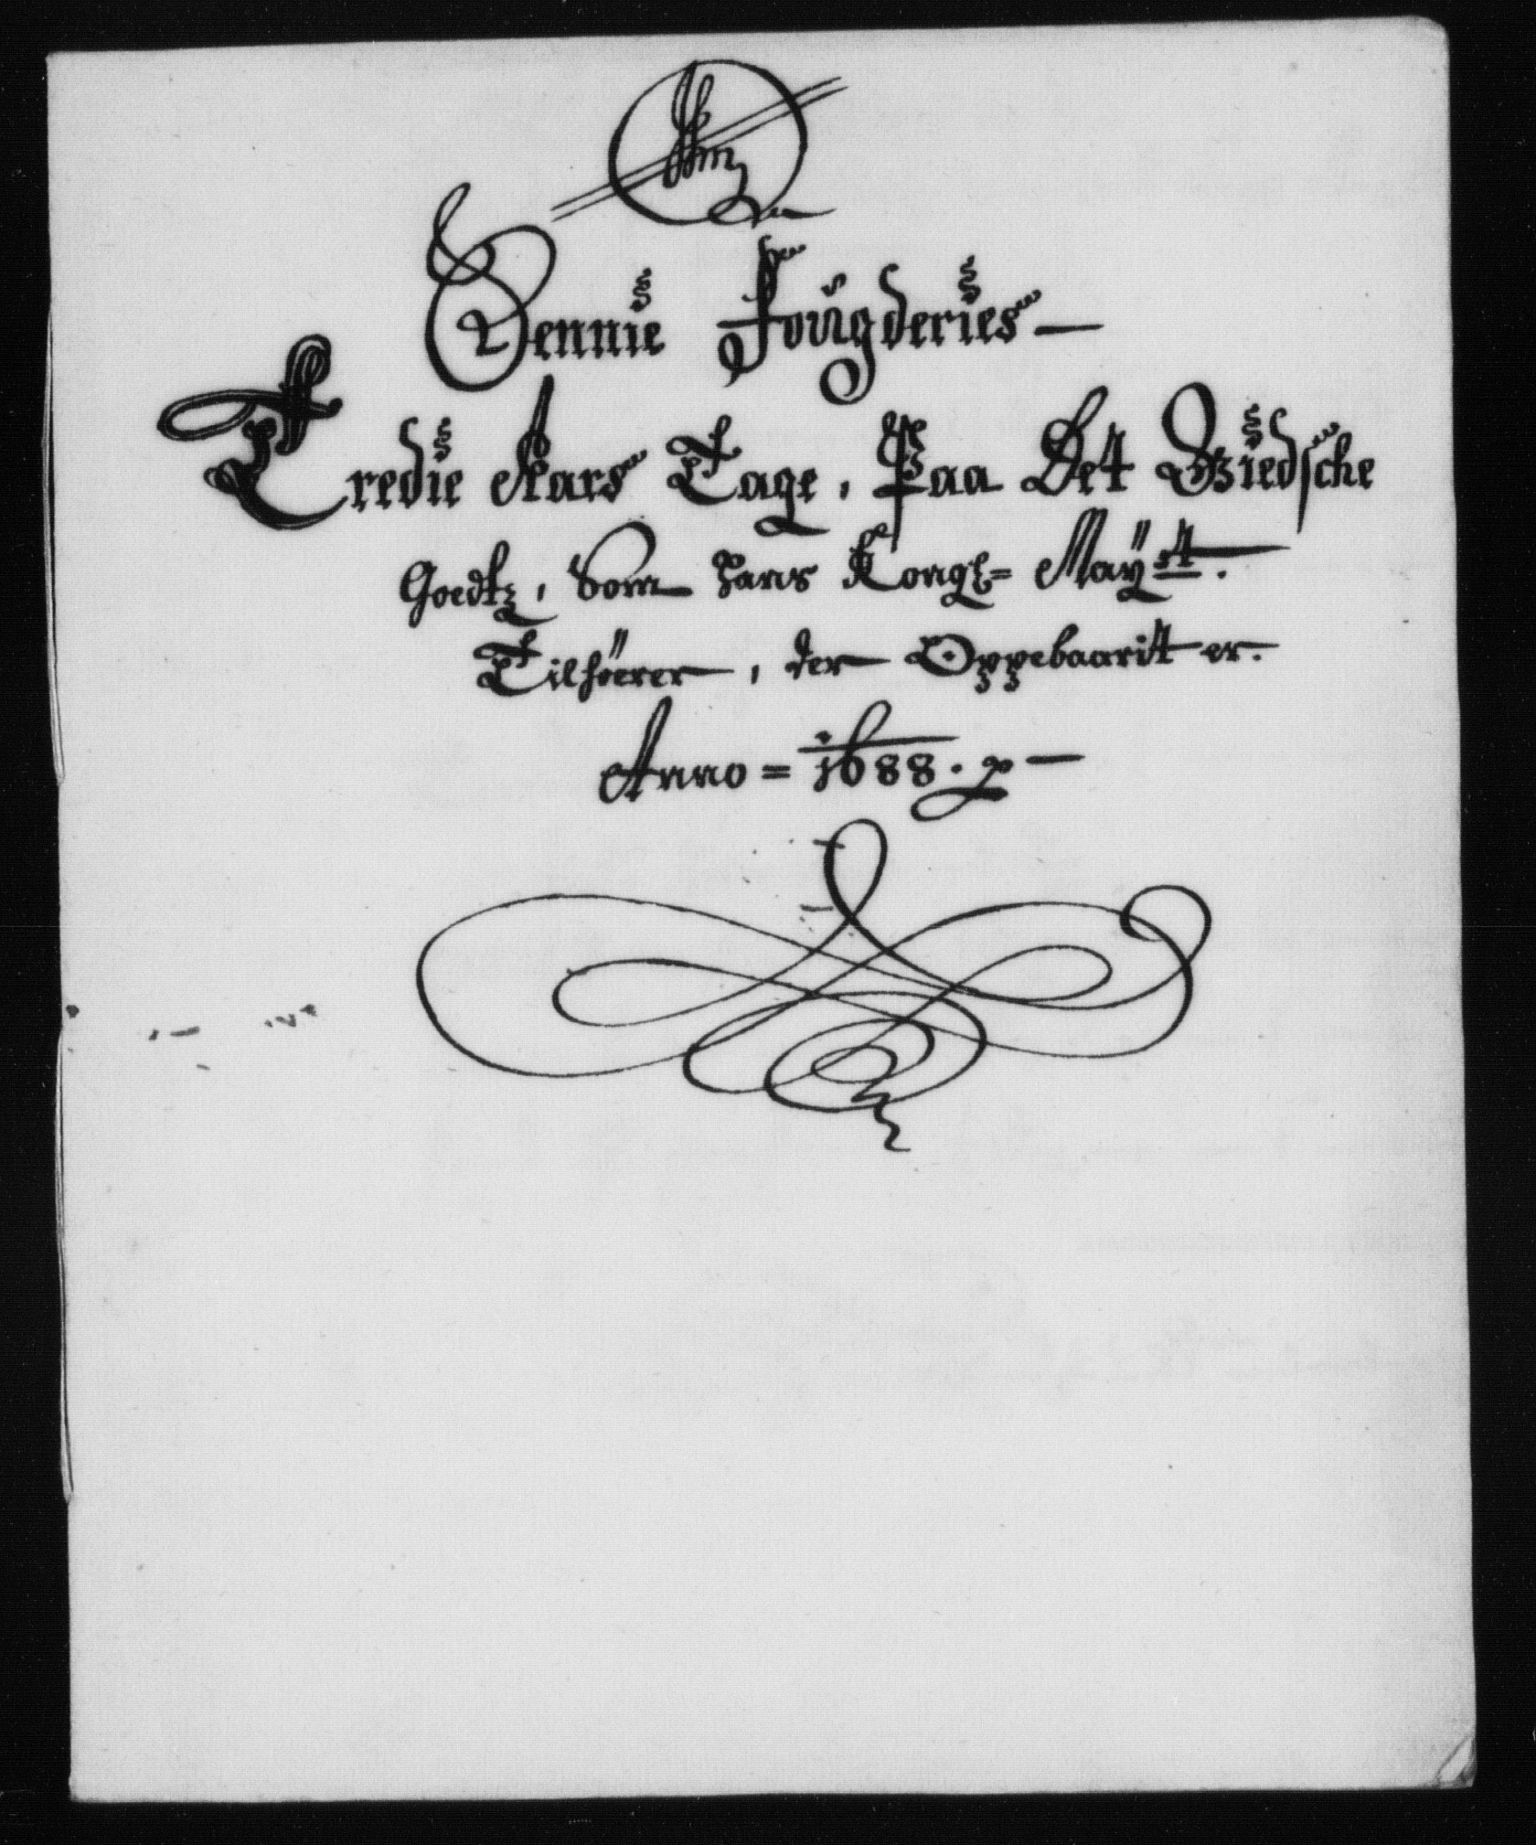 Dennie Fougderies
Tredie Aars Tage, Paa Det Giedsche
Goedtz, Som Hans Kongl= Mayst.
Tilhöerer, der Oppebaarit er.
Anno = 1688.